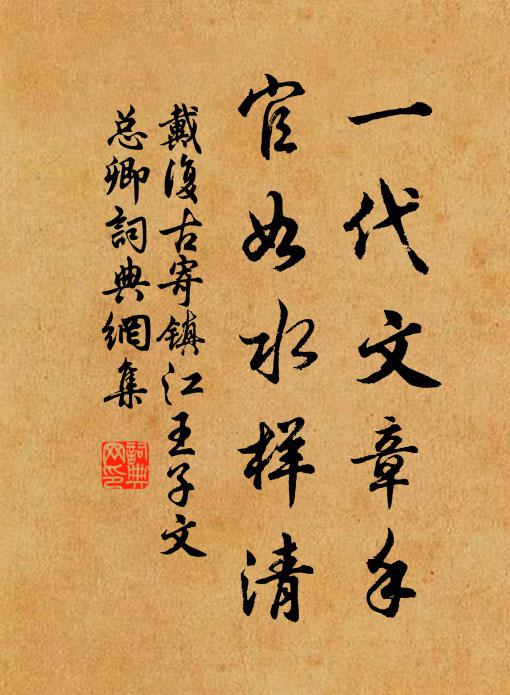 一代文章手
官如水样清
戴復古寄镇江王子文
总卿詞典網集
詞典
网印